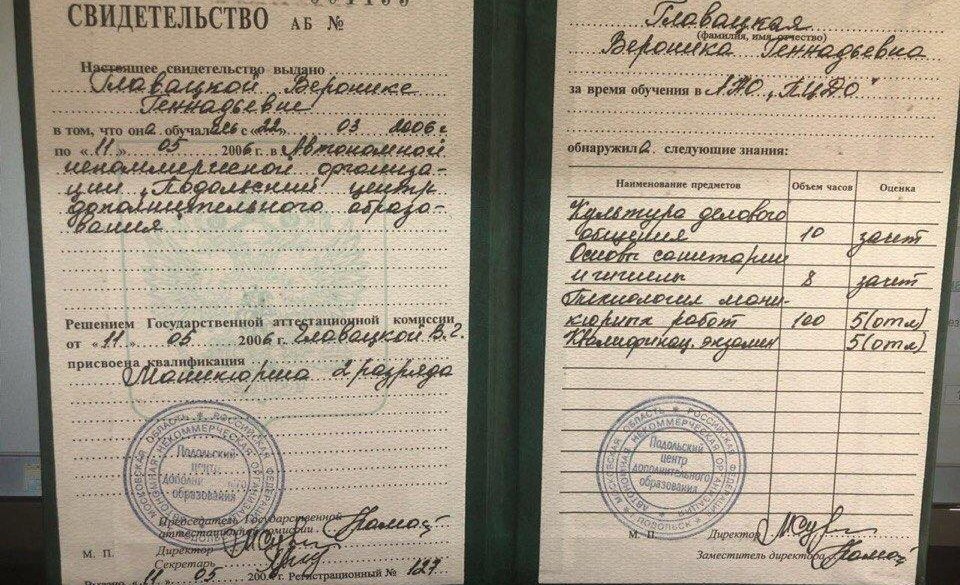 СВИДЕТЕЛЬСТВО АБ №
Настоящее свидетельство выдано
Главацкой Веронике
Геннадьевне
в том, что она обучалась с «22» 03 2006 г
по «11» 05 2006 г. в Автономной
некоммерческой организа-
ции "Подольский центр
дополнительного образо-
вания
Решением Государственной аттестационной комиссии
от «11» 05 2006 г. Главацкой В.Г.
присвоена квалификация
Маникюрша 2 разряда
МОСКОВСКАЯ ОБЛАСТЬ * РОССИЙСКАЯ ФЕДЕРАЦИЯ
АВТОНОМНАЯ НЕКОММЕРЧЕСКАЯ ОРГАНИЗАЦИЯ
Подольский
центр
дополнительного
образования
Председатель Государственной
аттестационной комиссии
Директор
М. П.
Секретарь
Выдано «11» 05 2006 г. Регистрационный № 127
Главацкая
(фамилия, имя, отчество)
Вероника Геннадьевна
за время обучения в АНО "ПЦДО"
обнаружила следующие знания:
Наименование предметов Объем часов Оценка
Культура делового
общения 10 зачет
Основы санитарии
и гигиены 8 зачет
Технология мани-
кюрных работ 100 5(отл)
Квалификац. экзамен 5(отл)
МОСКОВСКАЯ ОБЛАСТЬ * РОССИЙСКАЯ ФЕДЕРАЦИЯ
АВТОНОМНАЯ НЕКОММЕРЧЕСКАЯ ОРГАНИЗАЦИЯ
Подольский
центр
дополнительного
образования
ПОДОЛЬСК
М. П. Директор
Заместитель директора